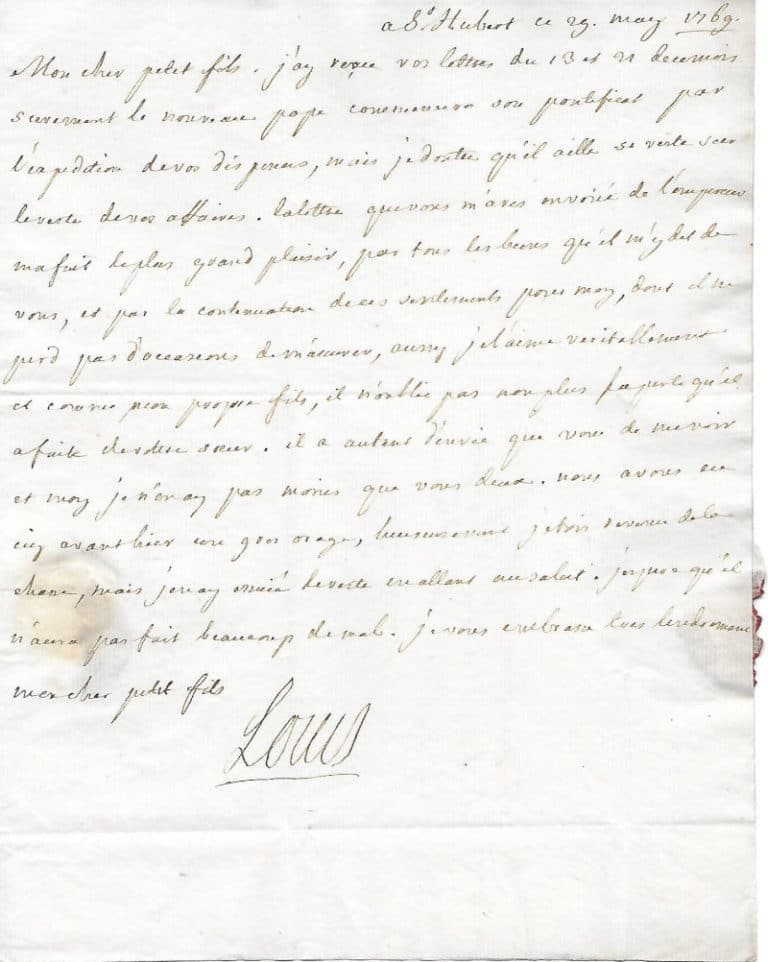 a St. Hubert ce 29. may 1769.
Mon cher petit fils. j'ay reçue vos lettres du 13 et 21 de ce mois
surement le nouveau pape commencera son pontificat par
l'expedition de vos dispenses, mais je doute qu'il aille si viste sur
le reste de vos affaires. la lettre que vous m'avés envoiée de l'empereur
m'a fait le plus grand plaisir, par tous les biens qu'il m'y dit de
vous, et par la continuation de ces sentiments pour moy, dont il ne
perd pas d'occasions de m'assurer, aussy je l'aime veritablement
et comme mon propre fils, il n'oublie pas non plus la perte qu'il
a faite de votre sœur. il a autant d'envie que vous de me voir
et moy je n'en ay pas moins que vous deux. nous avons eu
icy avant hier un gros orage, heureusement j'etois revenu de la
chasse, mais j'en ay essuié le reste en allant au salut. j'espere qu'il
n'aura pas fait beaucoup de mal. je vous embrasse tres tendrement
mon cher petit fils
Louis